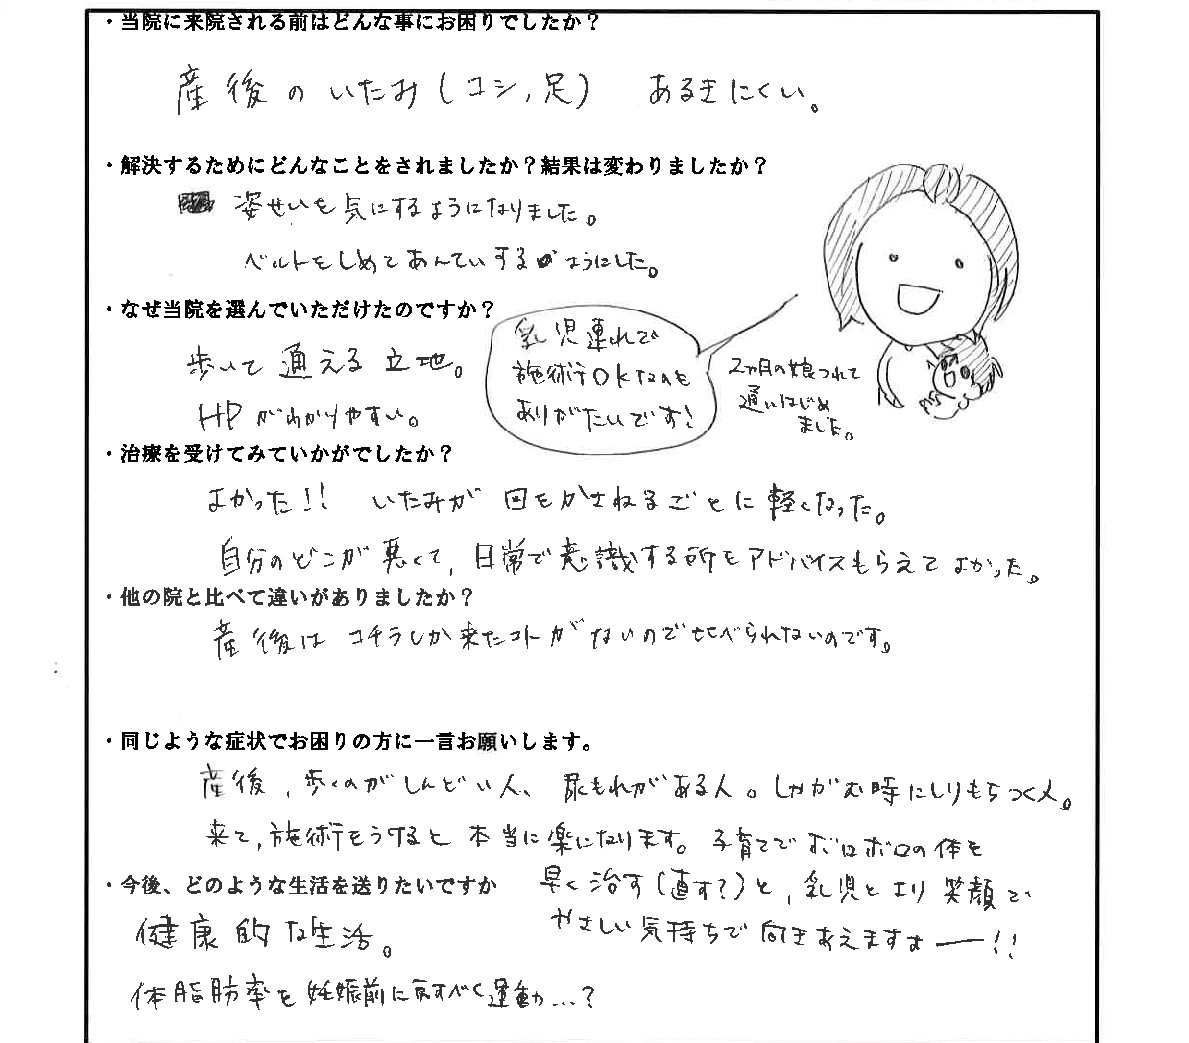 ・当院に来院される前はどんな事にお困りでしたか？
産後のいたみ(コシ,足)　あるきにくい。
・解決するためにどんなことをされましたか？結果は変わりましたか？
姿せいを気にするようになりました。
ベルトをしめてあんていするようにした。
・なぜ当院を選んでいただけたのですか？
歩いて通える立地。
HPがわかりやすい。
乳児連れで
施術OKなのも
ありがたいです!
2ヵ月の娘つれて
通いはじめ
ました。
・治療を受けてみていかがでしたか？
よかった!!　いたみが回をかさねるごとに軽くなった。
自分のどこが悪くて,日常で意識する所をアドバイスもらえてよかった。
・他の院と比べて違いがありましたか？
産後はコチラしか来たコトがないので比べられないのです。
・同じような症状でお困りの方に一言お願いします。
産後,歩くのがしんどい人、尿もれがある人。しゃがむ時にしりもちつく人。
来て,施術をうけると本当に楽になります。子育てでボロボロの体を
早く治す(直す?)と,乳児とより笑顔で
やさしい気持ちで向きあえますよー!!
・今後、どのような生活を送りたいですか
健康的な生活。
体脂肪率を妊娠前に戻すべく運動…?